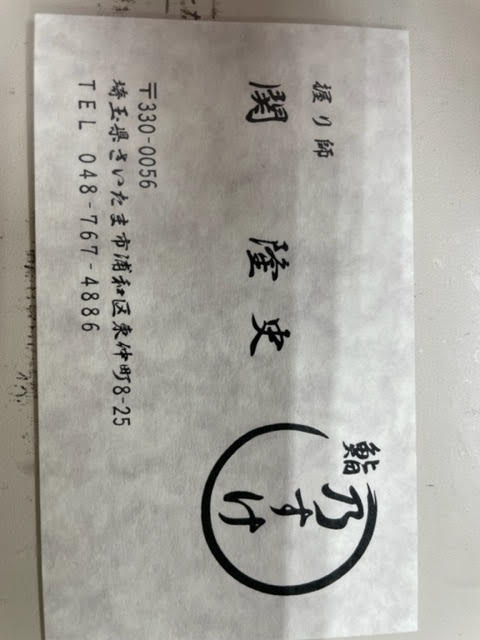 握り師
関 隆史
〒330-0056
埼玉県さいたま市浦和区東仲町8-25
TEL 048-767-4886
鮨
乃すけ